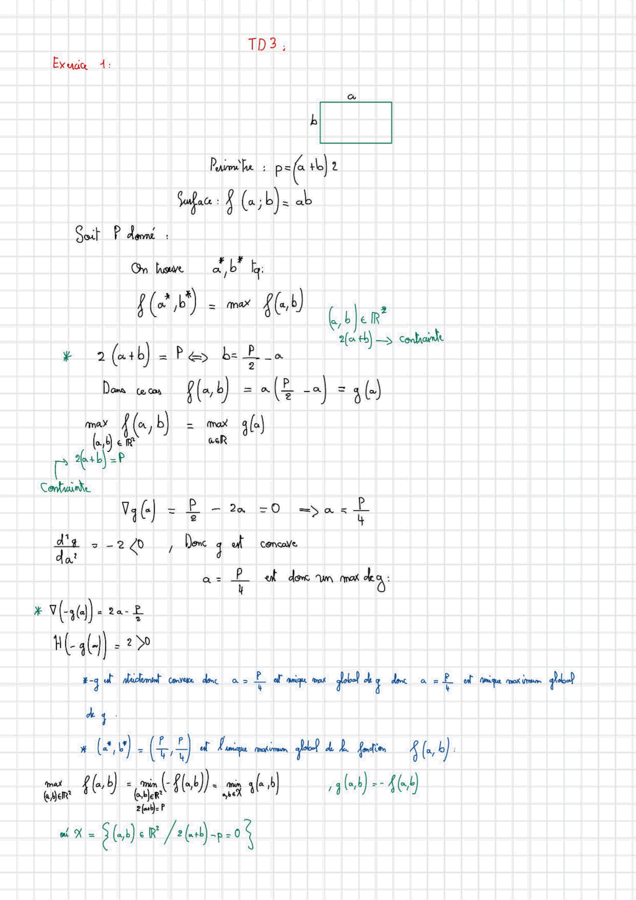 TD3:
Exercice 1:
a
b
Perimètre : p=(a+b)2
Surface: f(a;b)=ab
Soit P donné :
On trouve a*,b* tq:
f(a*,b*) = max f(a,b)
(a,b) ∈ ℝ²
2(a+b) → contrainte
* 2(a+b) = P ⟺ b = P/2 - a
Dans ce cas f(a,b) = a(P/2 - a) = g(a)
max f(a,b) = max g(a)
(a,b) ∈ ℝ² a∈ℝ
→ 2(a+b)=P
Contrainte
∇g(a) = P/2 - 2a = 0 ⟹ a = P/4
d²g/da² = -2 < 0 , Donc g est concave
a = P/4 est donc un max de g:
* ∇(-g(a)) = 2a - P/2
H(-g(a)) = 2 > 0
*-g est strictement convexe donc a = P/4 est unique max global de g donc a = P/4 est unique maximum global
de g.
* (a*, b*) = (P/4, P/4) est l'unique maximum global de la fonction f(a,b).
max f(a,b) = min (-f(a,b)) = min g(a,b) , g(a,b) = - f(a,b)
(a,b)∈ℝ² (a,b)∈ℝ² a,b∈X
2(a+b)=P
où X = {(a,b) ∈ ℝ² / 2(a+b)-p=0}